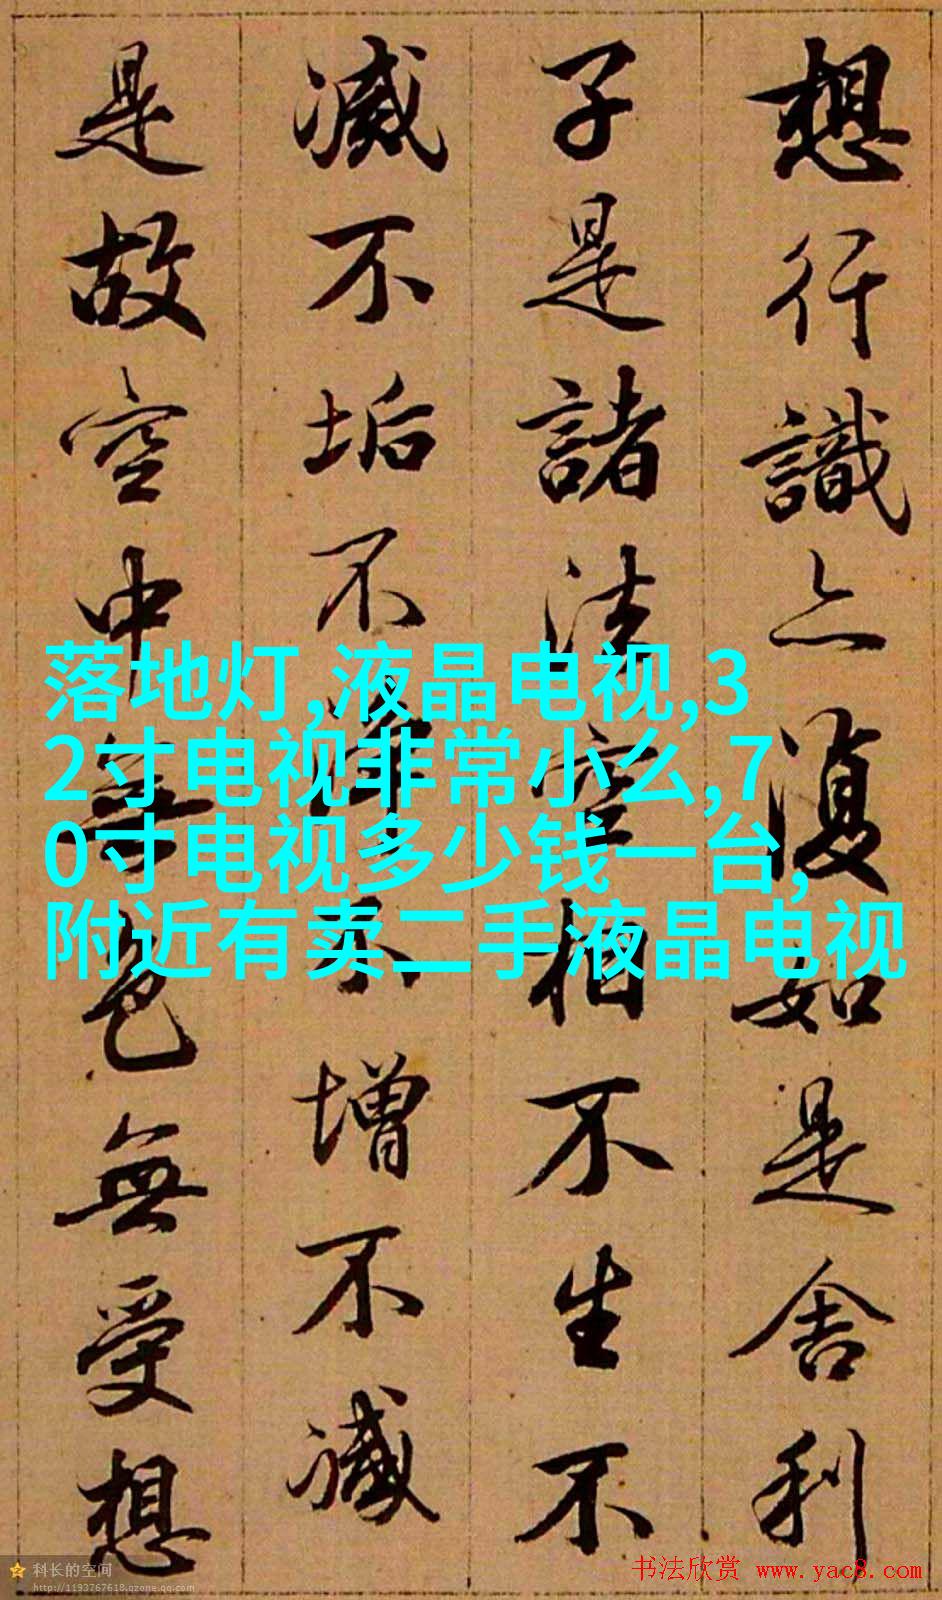 想行識亦復如是舍利
子是諸法空相不生不
滅不垢不淨不增不減
是故空中無色無受想
落地灯,液晶电视,3
2寸电视非常小么,7
0寸电视多少钱一台,
附近有卖二手液晶电视
科长的空间
http://1193767618.qzone.qq.com
书法欣赏 www.yac8.com